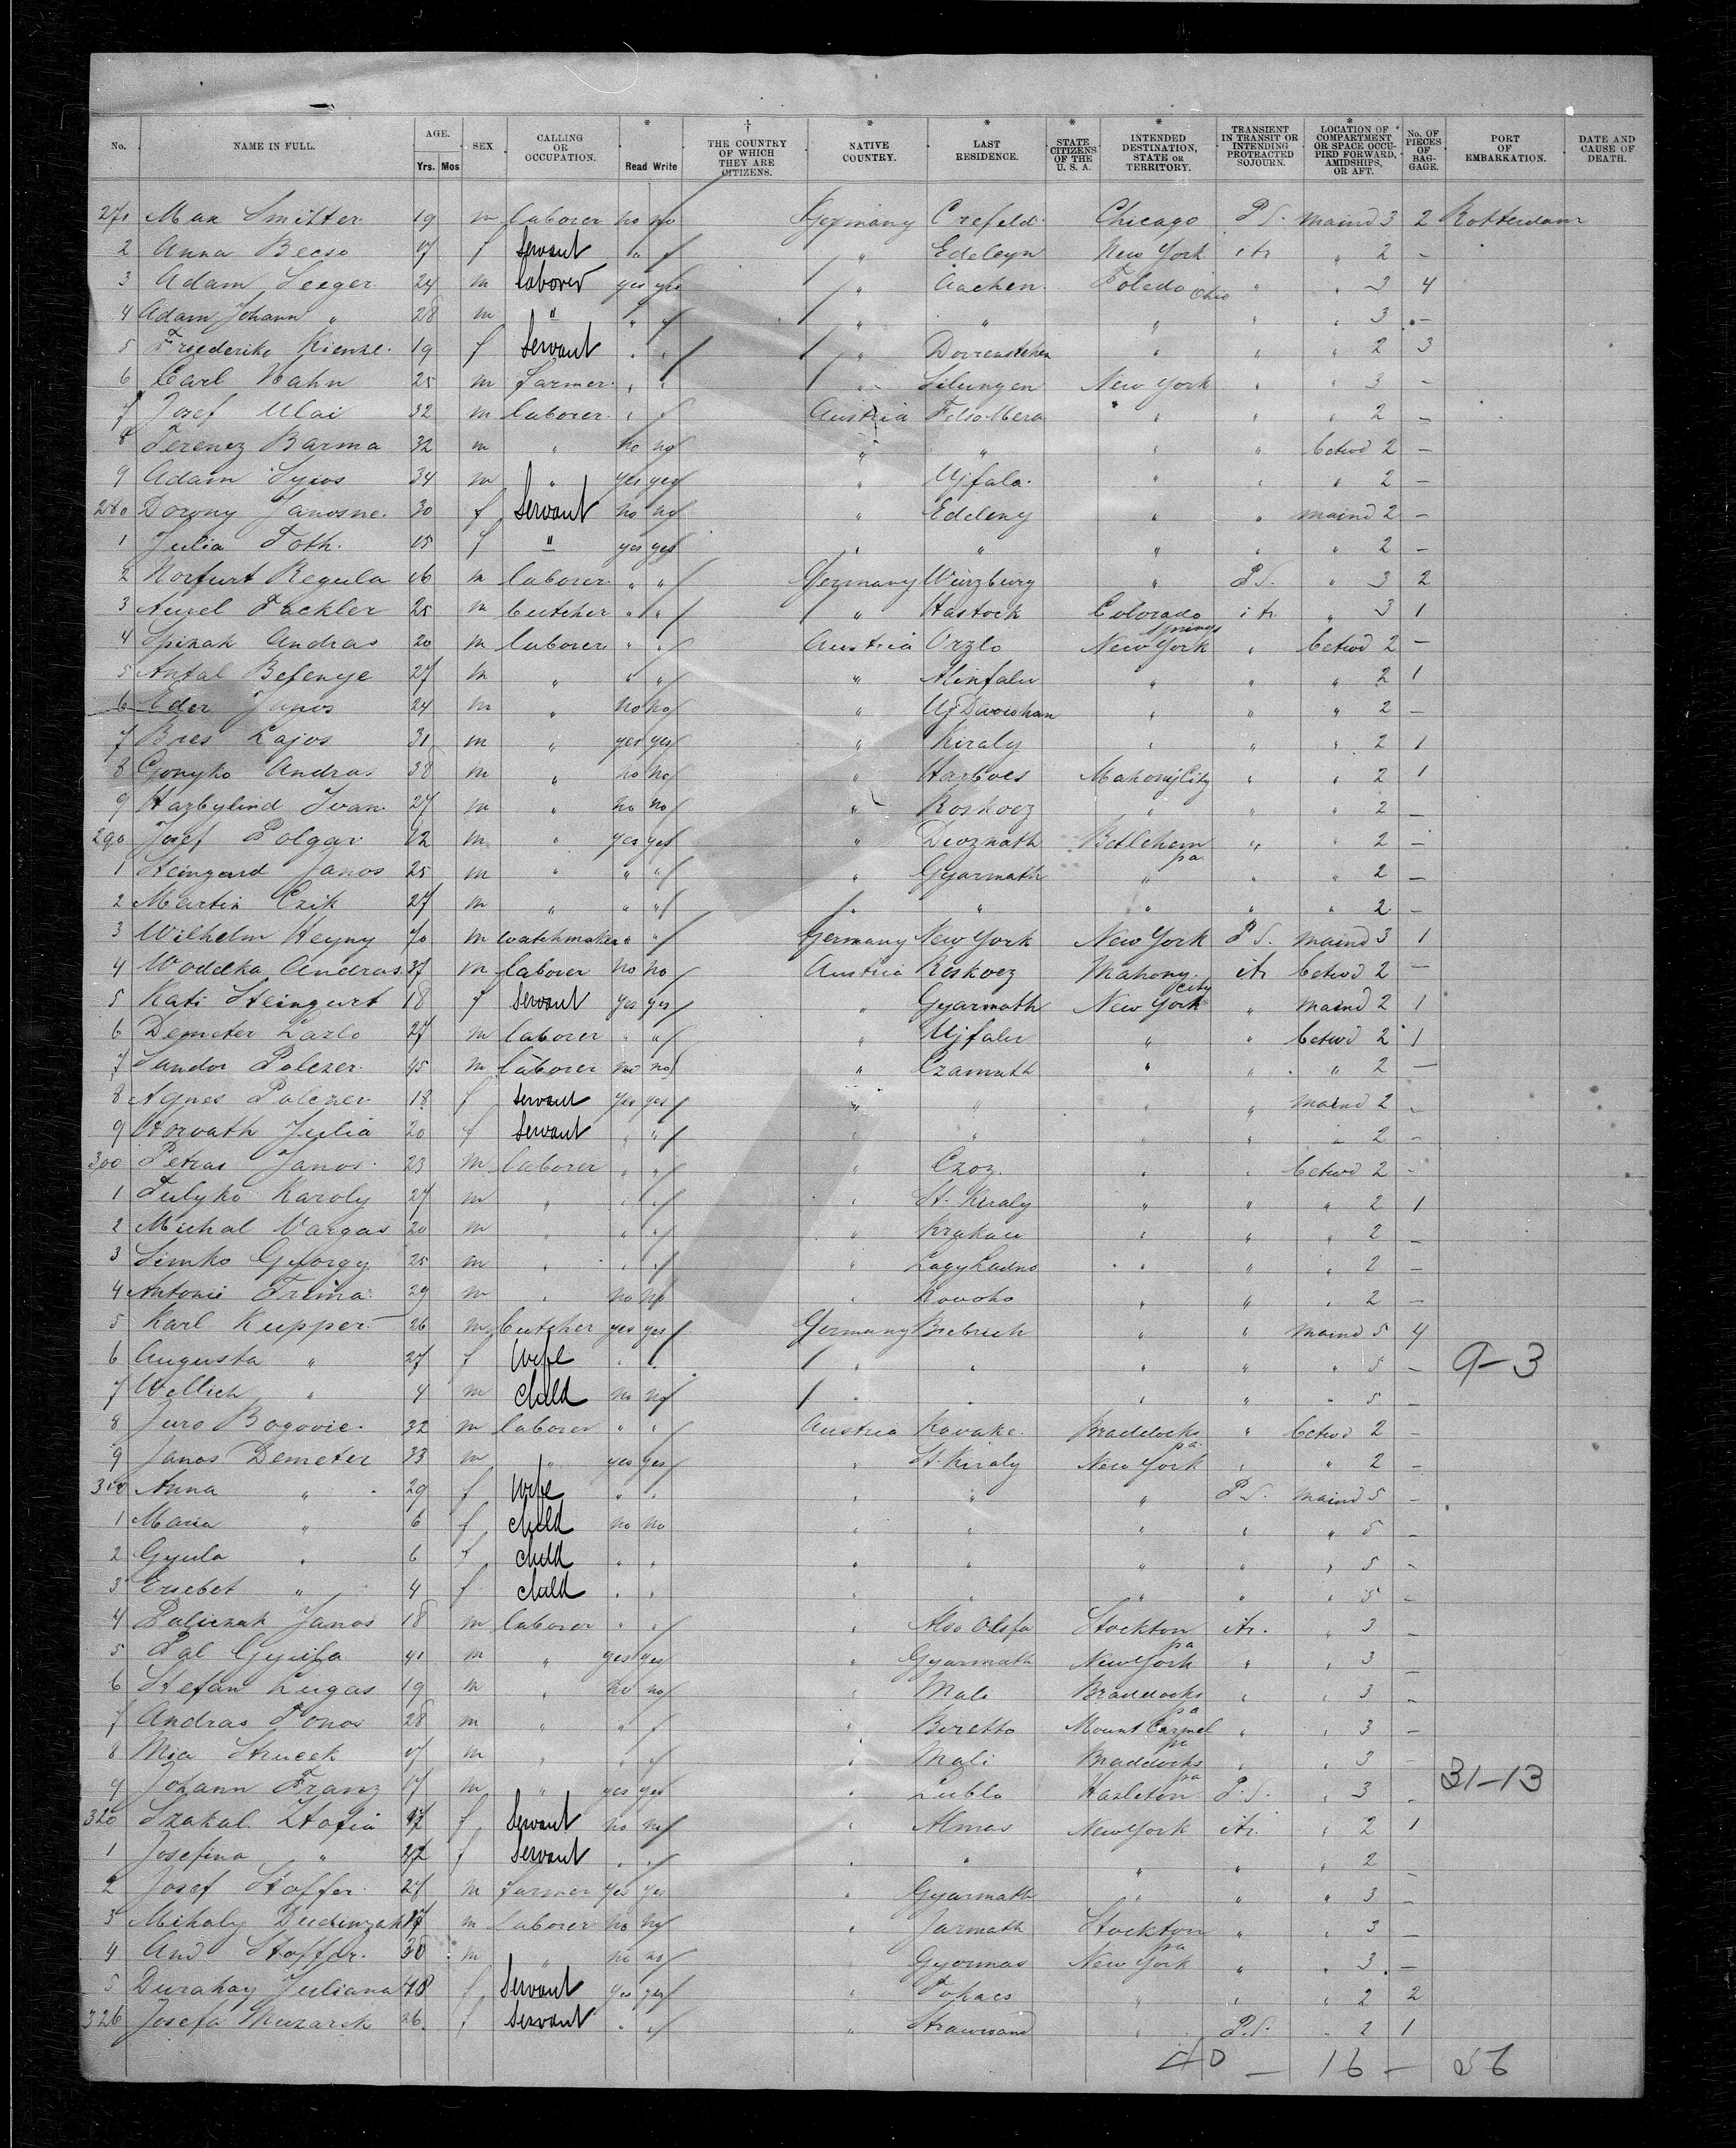 No. NAME IN FULL. AGE. Yrs. Mos SEX CALLING OR OCCUPATION. * Read Write † THE COUNTRY OF WHICH THEY ARE CITIZENS. * NATIVE COUNTRY. * LAST RESIDENCE. * STATE CITIZENS OF THE U. S. A. * INTENDED DESTINATION, STATE OR TERRITORY. TRANSIENT IN TRANSIT OR INTENDING PROTRACTED SOJOURN. * LOCATION OF COMPARTMENT OR SPACE OCCUPIED FORWARD, AMIDSHIPS, OR AFT. No. OF PIECES OF BAGGAGE. PORT OF EMBARKATION. DATE AND CAUSE OF DEATH.
271 Max Smitter 19 m laborer no no Germany Crefeld Chicago P.S. maind 3 2 Rotterdam
2 Anna Becso f servant " " " Edeleyn New York itr " 2 -
3 Adam Seeger 24 m laborer yes yes " Aachen Toledo Ohio " " 3 4
4 Adam Johann " 28 m " " " " " " " " 3 -
5 Friederike Kienze 19 f Servant " " " " " " 2 3
6 Carl Hahn 25 m farmer " " " New York " " 3 -
7 Josef Ulai 32 m laborer " " Austria Felso Mera " " " 2 -
8 Ferencz Barma 32 m " no no " " " " betwd 2 -
9 Adam 34 m " yes yes " Ujfalu " " " 2 -
280 Dorony Janosne 30 f Servant no no " Edeleny " " maind 2 -
1 Julia Toth 15 f " yes yes " " " " " 2 -
2 Norfurt Regula 16 m laborer " " Germany Würzburg " P.S. " 3 2
3 Aurel Fackler 25 m butcher " " " Hastock Colorado Springs itr " 3 1
4 Spizak Andras 20 m laborer " " Austria Orzlo New York " betwd 2 -
5 Antal Befenye 27 m " " " " Alinfalu " " " 2 1
6 Eder Janos 24 m " no no " " " " 2 -
7 Bres Lajos 31 m " yes yes " Kiraly " " " 2 1
8 Gonyko Andras 38 m " no no " Harboes Mahony City " " 2 1
9 Hazbylind Ivan 27 m " no no " Roskocz " " " 2 -
290 Josef Polgar 42 m " yes yes " Dioznath Betlehem pa " " 2 -
1 Steingard Janos 25 m " " " " Gyarmath " " " 2 -
2 Martin Czik 27 m " " " " " " " " 2 -
3 Wilhelm Heyny 40 m watchmaker " " Germany New York New York P.S. maind 3 1
4 Woddka Andras 37 m laborer no no Austria Roskocz Mahony City itr betwd 2 -
5 Kati Steingurt 18 f Servant yes yes " Gyarmath New York " maind 2 1
6 Demeter Lazlo 27 m laborer " " " Ujfalu " " betwd 2 1
7 Sandor Polczer 45 m laborer no no " Czamuth " " " 2 -
8 Agnes Polczer 18 f servant yes yes " " " " maind 2 -
9 Horvath Julia 20 f Servant " " " " " " " 2 -
300 Petras Janos 23 m laborer " " " Czoz " " betwd 2 -
1 Tulyko Karoly 27 m " " " " St. Kiraly " " " 2 1
2 Michal Vargas 20 m " " " " Krakau " " " 2 -
3 Simko Gyorgy 25 m " " " " " " " 2 -
4 Antonie Trima 29 m " no no " Kovoko " " " 2 -
5 Karl Kupper 26 m butcher yes yes Germany Biebrich " " maind 5 4
6 Augusta " 27 f Wife " " " " " " " 5 - 9-3
7 Wellich " 4 m child no no " " " " " 5 -
8 Juro Bogovic 32 m laborer " " Austria Kovake Braddocks pa " betwd 2 -
9 Janos Demeter 33 m " yes yes " St. Kiraly New York " " 2 -
310 Anna " 29 f Wife " " " " " P.S. maind 5 -
1 Maria " 6 f child no no " " " " " 5 -
2 Gyula " 6 f child " " " " " " " 5 -
3 Ersebet " 4 f child " " " " " " " 5 -
4 Paliczak Janos 18 m laborer " " " Also Olsfa Stockton pa itr. " 3 -
5 Pal Gyulfa 41 m " yes yes " Gyarmath New York " " 3 -
6 Stefan Lugas 19 m " no no " Mali Braddocks pa " " 3 -
7 Andras Tonos 28 m " " " " Beretto Mount Carmel pa " " 3 -
8 Mia Strucek 17 m " " " " Mali Braddocks pa " " 3 -
9 Johann Franz 17 m " yes yes " Lublo Hazleton P.S. " 3 - 31-13
320 Szakal Zsofia 47 f Servant no no " Almas New York itr. " 2 1
1 Josefina " f Servant " " " " " " " 2 -
2 Josef Stoffer 27 m farmer yes yes " Gyarmath " " " 3 -
3 Mihaly m laborer no no " Jarmath Stockton pa " " 3 -
4 And Stoffer m " no no " Gyormas New York " " 3 -
5 Durahay Juliana 48 f Servant yes yes " Tokaes " " " 2 2
326 Josefa Muzarek 26 f Servant " " " " P.S. " 2 1
40 - 16 - 56